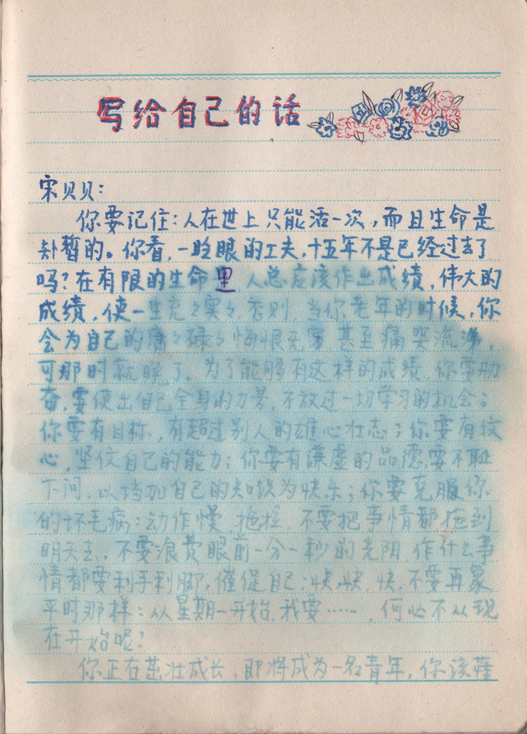 写给自己的话
宋贝贝:
你要记住:人在世上只能活一次,而且生命是
短暂的。你看,一眨眼的工夫,十五年不是已经过去了
吗?在有限的生命里 人总应该作出成绩,伟大的
成绩,使一生充々实々,否则,当你老年的时候,你
会为自己的庸々碌々悔恨无穷甚至痛哭流涕,
可那时就晚了。为了能够有这样的成绩,你要勤
奋,要使出自己全身的力劳,不放过一切学习的机会;
你要有目标,有超过别人的雄心壮志;你要有信
心,坚信自己的能力;你要有谦虚的品德,要不耻
下问,以增加自己的知识为快乐;你要克服你
的坏毛病:动作慢,拖拉,不要把事情都拖到
明天去,不要浪费眼前一分一秒的光阴,作什么事
情都要利手利脚,催促自己:快,快,快,不要再象
平时那样:从星期一开始,我要……,何必不从现
在开始呢?
你正在茁壮成长,即将成为一名青年,你该懂